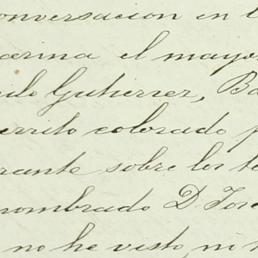 onversacion en l
arina el mayor
cilo Gutierrez, Ba
errito colorado p
rante sobre los te
nombrado D. Jos
no he visto, ni